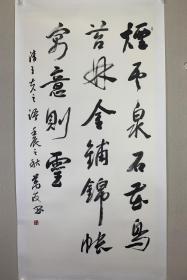 烟云泉石花鸟
苔林金铺锦帐
寓意则灵
清王夫之语 壬辰之秋